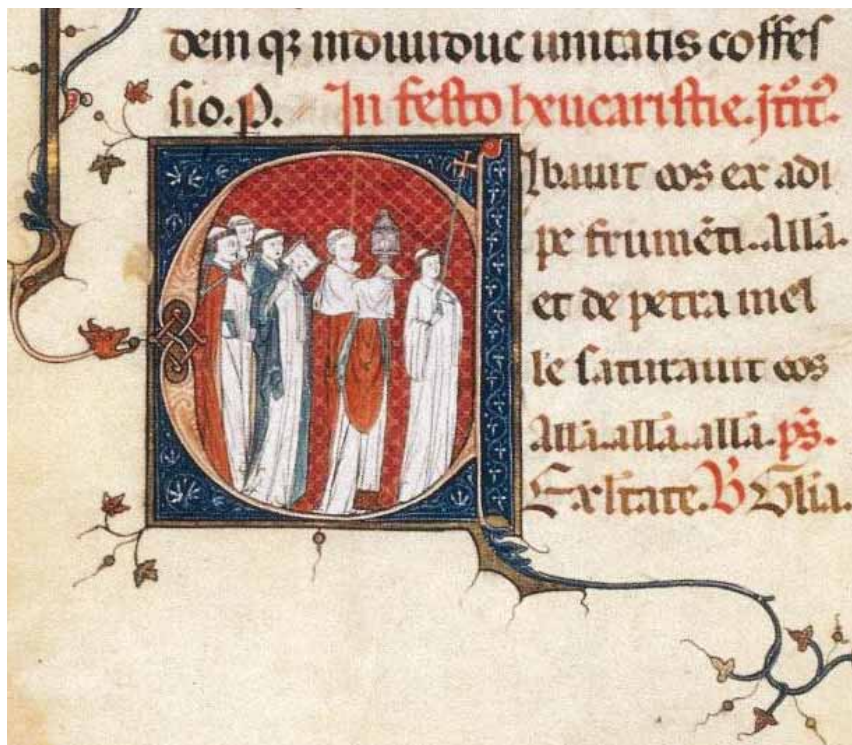 dem qƷ indiuiduc unitatis coffes
sio. p. In festo heucaristie. jtit̄.
Cibauit eos ex adi
pe frumēti. all̄a.
et de petra mel
le saturauit eos
all̄a. all̄a. all̄a. ps̄.
Exl̄tate. V Gl̄ia.